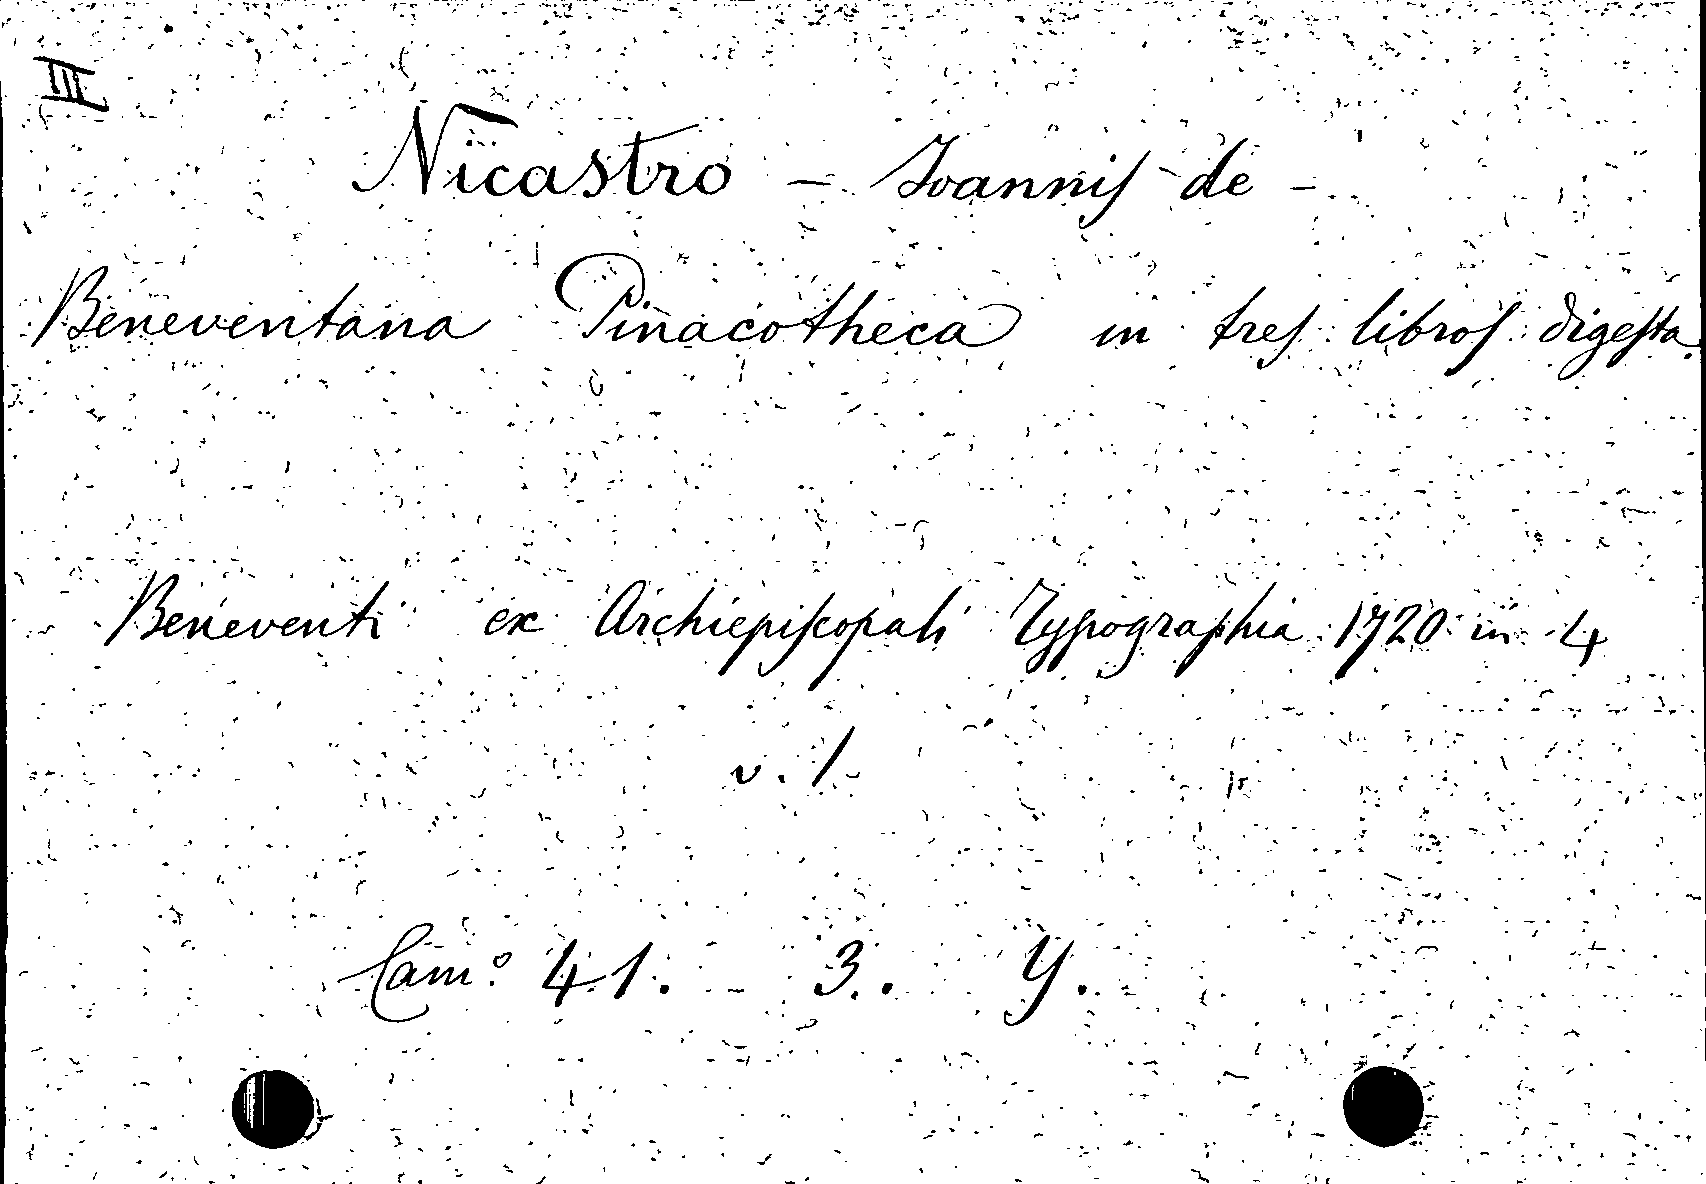 III
Nicastro - Ioannis de -
Beneventana Pinacotheca in tres libros digesta.
Beneventi ex Archiepiscopali Typographia 1720 in 4
v. 1.
Cam.º 41. 3. Y.